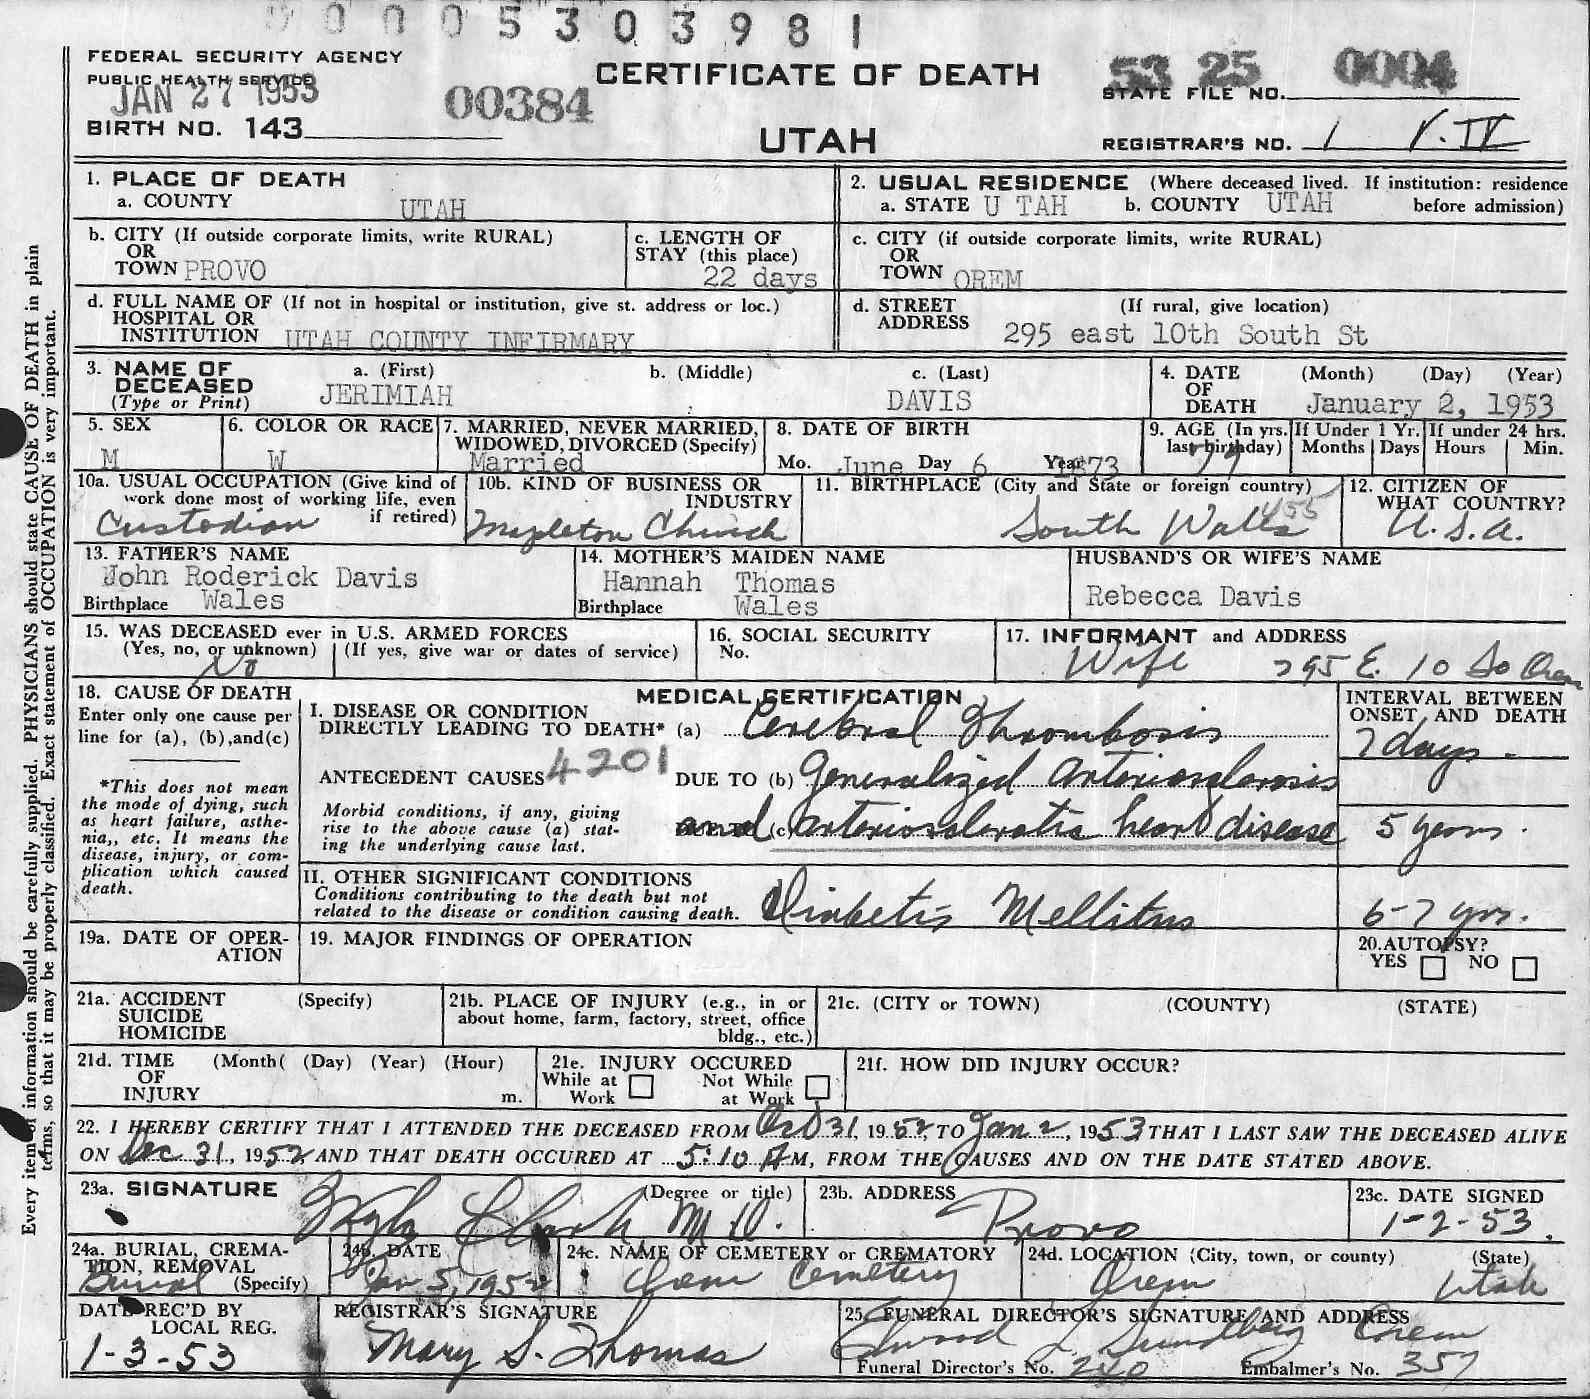 0000 5303981
FEDERAL SECURITY AGENCY
PUBLIC HEALTH SERVICE
JAN 27 1953
00384
BIRTH NO. 143
CERTIFICATE OF DEATH
UTAH
53 25 0004
STATE FILE NO.
REGISTRAR'S NO. 1
1. PLACE OF DEATH
a. COUNTY UTAH
2. USUAL RESIDENCE (Where deceased lived. If institution: residence before admission)
a. STATE U TAH b. COUNTY UTAH
b. CITY (If outside corporate limits, write RURAL)
OR
TOWN PROVO
c. LENGTH OF
STAY (this place)
22 days
c. CITY (if outside corporate limits, write RURAL)
OR
TOWN OREM
d. FULL NAME OF (If not in hospital or institution, give st. address or loc.)
HOSPITAL OR
INSTITUTION UTAH COUNTY INFIRMARY
d. STREET (If rural, give location)
ADDRESS 295 east 10th South St
3. NAME OF
DECEASED
(Type or Print)
a. (First) b. (Middle) c. (Last)
JERIMIAH DAVIS
4. DATE (Month) (Day) (Year)
OF
DEATH January 2, 1953
5. SEX
M
6. COLOR OR RACE
W
7. MARRIED, NEVER MARRIED,
WIDOWED, DIVORCED (Specify)
Married
8. DATE OF BIRTH
Mo. June Day 6 Year 1873
9. AGE (In yrs. last birthday)
79
If Under 1 Yr.
Months Days
If under 24 hrs.
Hours Min.
10a. USUAL OCCUPATION (Give kind of
work done most of working life, even
if retired)
Custodian
10b. KIND OF BUSINESS OR
INDUSTRY
Mapleton Church
11. BIRTHPLACE (City and State or foreign country)
South Wales
12. CITIZEN OF
WHAT COUNTRY?
U.S.A.
13. FATHER'S NAME
John Roderick Davis
Birthplace Wales
14. MOTHER'S MAIDEN NAME
Hannah Thomas
Birthplace Wales
HUSBAND'S OR WIFE'S NAME
Rebecca Davis
15. WAS DECEASED ever in U.S. ARMED FORCES
(Yes, no, or unknown) (If yes, give war or dates of service)
No
16. SOCIAL SECURITY
No.
17. INFORMANT and ADDRESS
Wife 295 E. 10 So Orem
18. CAUSE OF DEATH
Enter only one cause per
line for (a), (b),and(c)
*This does not mean
the mode of dying, such
as heart failure, asthe-
nia,, etc. It means the
disease, injury, or com-
plication which caused
death.
MEDICAL CERTIFICATION
I. DISEASE OR CONDITION
DIRECTLY LEADING TO DEATH* (a) Cerebral Thrombosis
ANTECEDENT CAUSES 4201 DUE TO (b) Generalized Arteriosclerosis
Morbid conditions, if any, giving
rise to the above cause (a) stat-
ing the underlying cause last.
and (c) arteriosclerotic heart disease
INTERVAL BETWEEN
ONSET AND DEATH
7 days.
5 years.
II. OTHER SIGNIFICANT CONDITIONS
Conditions contributing to the death but not
related to the disease or condition causing death. Diabetis Mellitus
6-7 yrs.
19a. DATE OF OPER-
ATION
19. MAJOR FINDINGS OF OPERATION
20.AUTOPSY?
YES NO
21a. ACCIDENT (Specify)
SUICIDE
HOMICIDE
21b. PLACE OF INJURY (e.g., in or
about home, farm, factory, street, office
bldg., etc.)
21c. (CITY or TOWN) (COUNTY) (STATE)
21d. TIME (Month( (Day) (Year) (Hour)
OF
INJURY m.
21e. INJURY OCCURED
While at Work Not While at Work
21f. HOW DID INJURY OCCUR?
22. I HEREBY CERTIFY THAT I ATTENDED THE DECEASED FROM Oct 31, 1952, TO Jan 2, 1953 THAT I LAST SAW THE DECEASED ALIVE
ON Dec 31, 1952, AND THAT DEATH OCCURED AT 5:10 AM, FROM THE CAUSES AND ON THE DATE STATED ABOVE.
23a. SIGNATURE (Degree or title)
Clark M.D.
23b. ADDRESS
Provo
23c. DATE SIGNED
1-2-53.
24a. BURIAL, CREMA-
TION, REMOVAL
(Specify)
Burial
24b. DATE
Jan 5, 1952
24c. NAME OF CEMETERY or CREMATORY
Orem Cemetery
24d. LOCATION (City, town, or county) (State)
Orem Utah
DATE REC'D BY
LOCAL REG.
1-3-53
REGISTRAR'S SIGNATURE
Mary S. Thomas
25. FUNERAL DIRECTOR'S SIGNATURE AND ADDRESS
Elwood L Sundberg Orem
Funeral Director's No. 240 Embalmer's No. 357
Every item of information should be carefully supplied. PHYSICIANS should state CAUSE OF DEATH in plain
terms, so that it may be properly classified. Exact statement of OCCUPATION is very important.